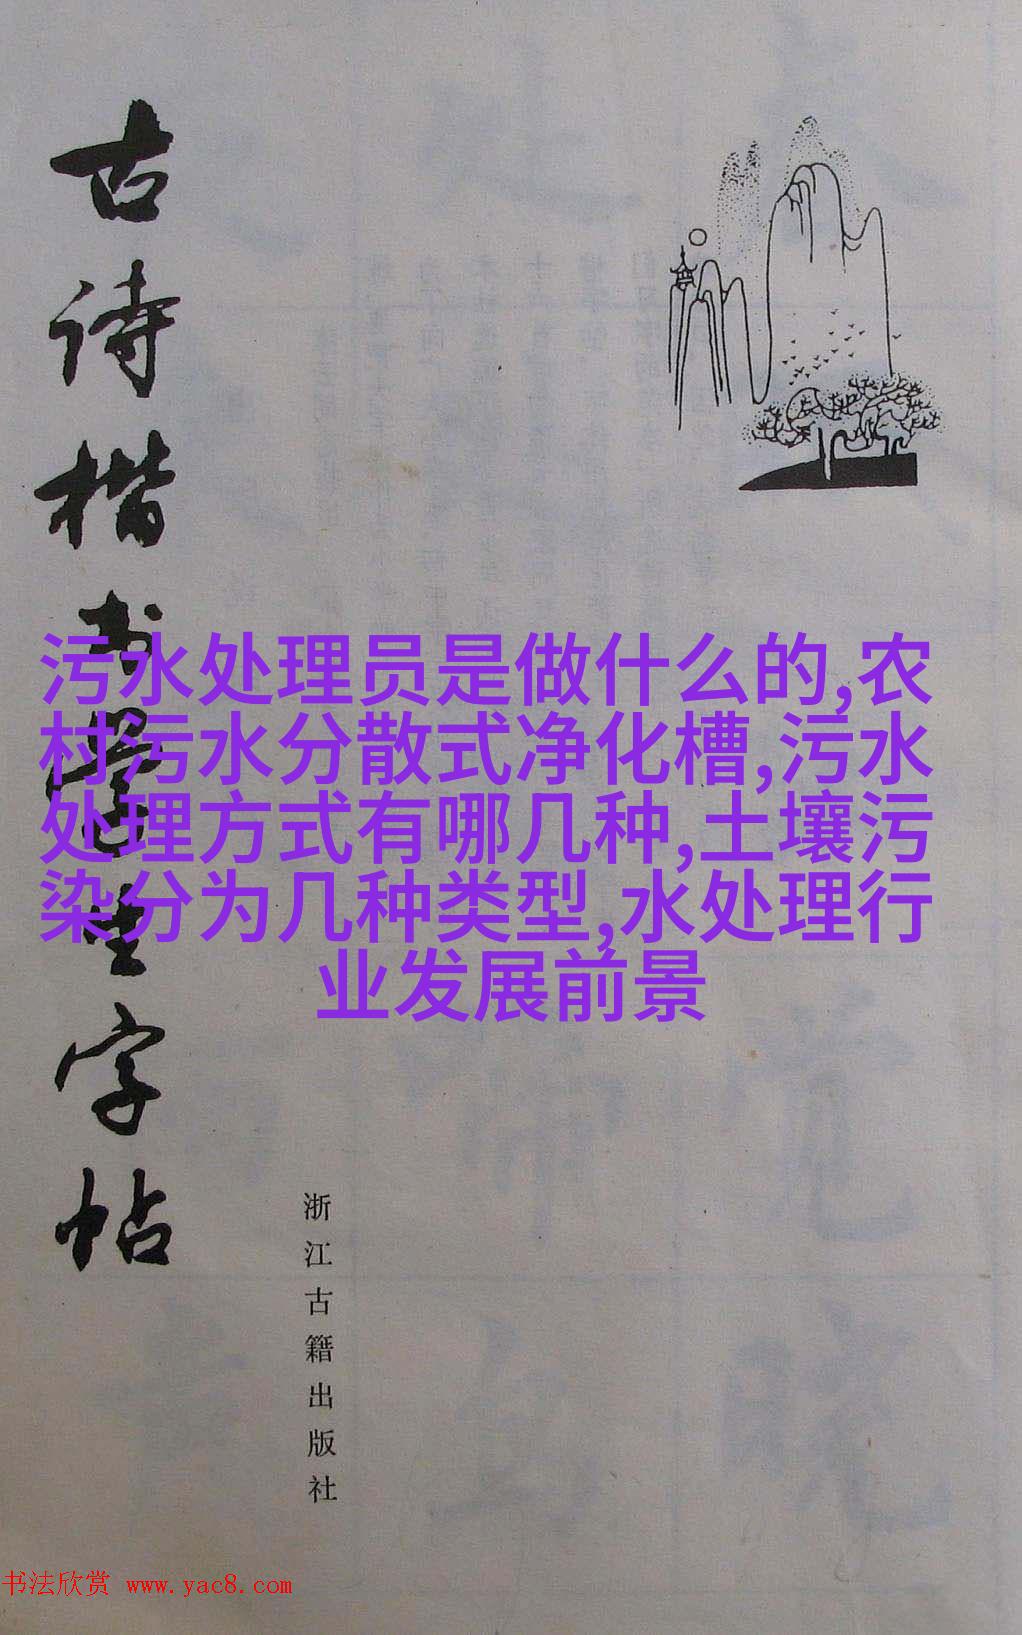 古诗楷书学生字帖
污水处理员是做什么的,农
村污水分散式净化槽,污水
处理方式有哪几种,土壤污
染分为几种类型,水处理行
业发展前景
浙江古籍出版社
书法欣赏 www.yac8.com